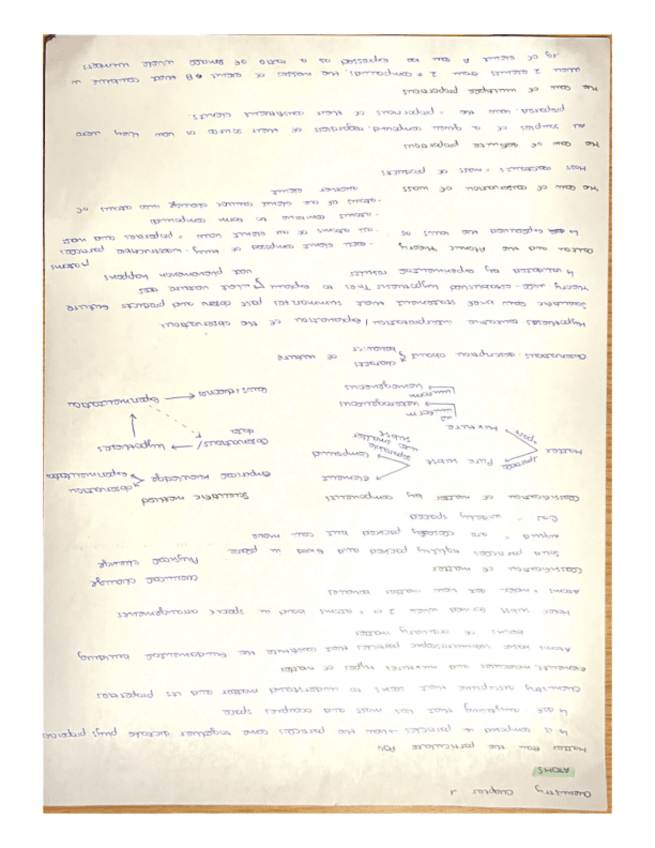 Chemistry Chapter 1
ATOMS
Matter from the particulate POV
↳ is composed of particles → how the particles come together dictate phys properties
↳ def - anything that has mass and occupies space
Chemistry discipline that seeks to understand matter and its properties
elements, molecules and mixtures types of matter
Atoms basic submicroscopic particles that constitute the fundamental building
blocks of ordinary matter
Molec. subst. formed when 2 or + atoms bond in specific arrangements
Atoms + molec. det how matter behaves
Classification of matter
Solid particles tightly packed and fixed in place
Liquid " are closely packed but can move
Gas " widely spaced
Chemical change
Physical change
Classification of matter by components
Matter
Pure subst.
element
compound
separable into smaller subst.
Mixture
heterogeneous
homogeneous
uniform
Scientific method
Empirical knowledge
observation
experimentation
Observations/ data → Hypotheses
Laws + theories
experimentation
Observations: description about characs. behavior of nature
Hypotheses tentative interpretation / explanation of the observations
Scientific law brief statement that summarizes past observ and predicts future
Theory well-established hypothesis Tries to explain what nature does
not phenomenon happens
↳ validated by experimental results
Dalton and the Atomic Theory - each element composed of tiny, indestructible particles: atoms
↳ explained the laws of: - all atoms of an element have = properties and mass
- atoms combine to form compounds
- atoms of one element cannot change into atoms of
another element
The law of conservation of mass
Mass reactants = mass of products
The law of definite proportions
All samples of a given compound, regardless of their source or how they were
prepared, have the = proportions of their constituent elements.
The law of multiple proportions
When 2 elements form 2 + compounds, the masses of element B that combine w
1g of element A can be expressed as a ratio of small whole numbers